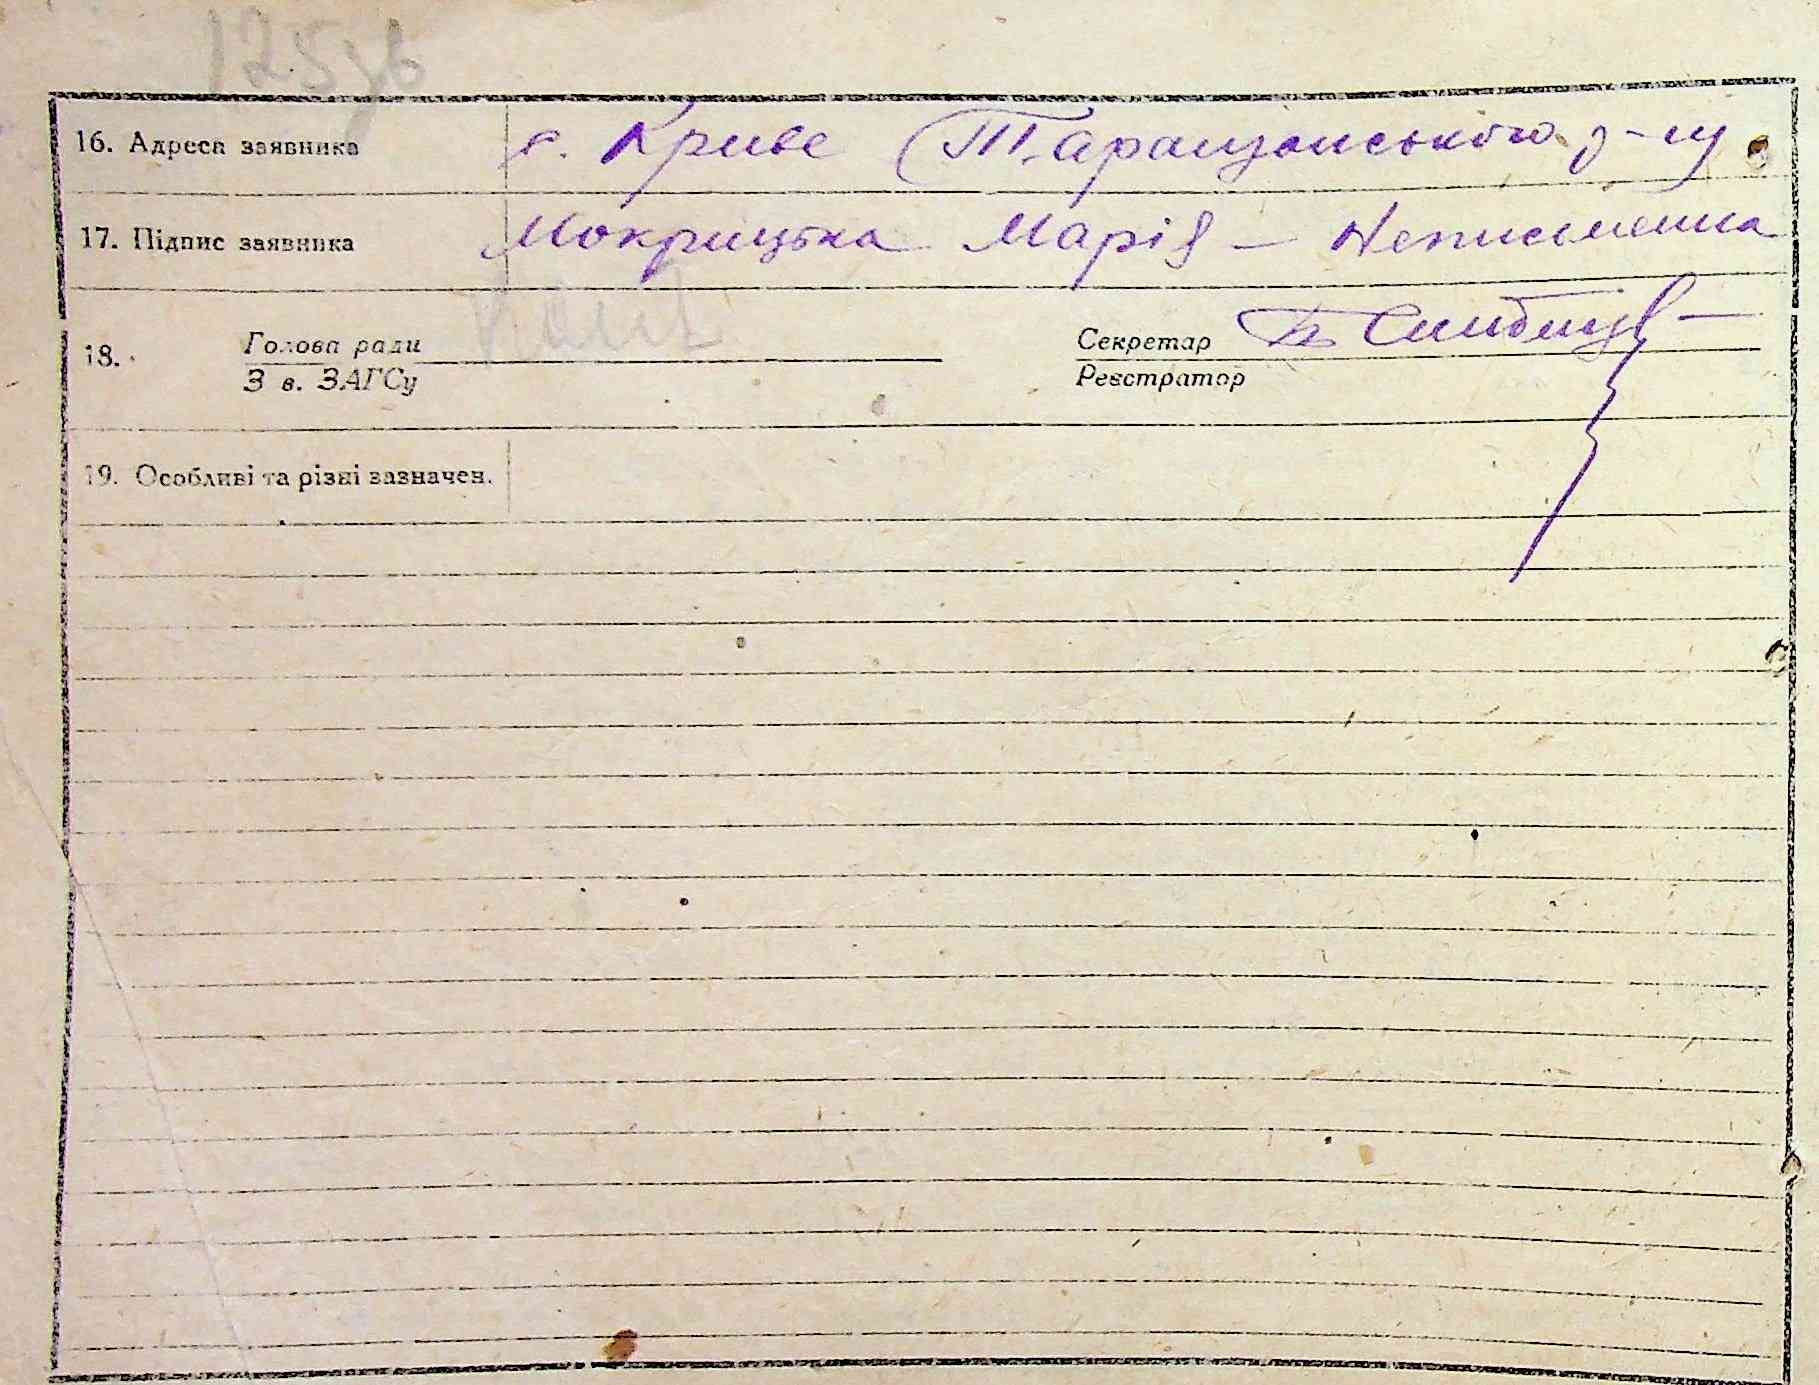 125зв
16. Адреса заявника с. Криве Таращанського р-ну
17. Підпис заявника Мокрицька Марія — Неписьменна
18. Голова ради Секретар
З в. ЗАГСу Реєстратор
19. Особливі та різні зазначен.